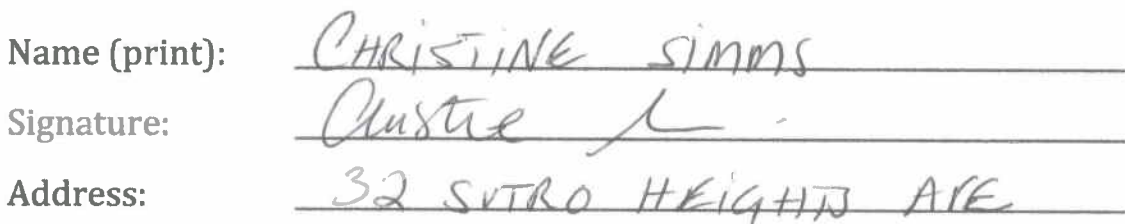 Name (print): CHRISTINE SIMMS
Signature:
Address: 32 SUTRO HEIGHTS AVE